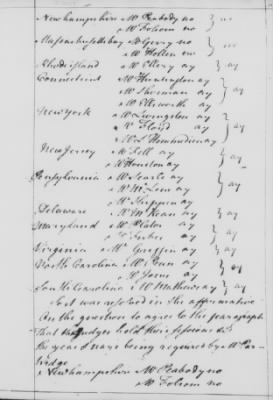 Newhampshire Mr Peabody no } no
Mr Folsom no
Massachusettsbay Mr Gerry no } no
Mr Holten no
Rhodeisland Mr Ellery ay } ay
Connecticut Mr Huntington ay } ay
Mr Sherman ay
Mr Ellsworth ay
New York Mr Livingston ay } ay
Mr Floyd ay
Mr L Hommedieu ay
New Jersey Mr Fell ay } ay
Mr Houston ay
Pensylvania Mr Searle ay } ay
Mr McLene ay
Mr Shippen ay
Delaware Mr McKean ay } ay
Maryland Mr Plater ay } ay
Mr Forbes ay
Virginia Mr Griffin ay } ay
North Carolina Mr Penn ay } ay
Mr Jones ay
South Carolina Mr Mathews ay } ay
So it was resolved in the affirmative
On the question to agree to the paragraph
That the judges hold their
the yeas & nays being required by Mr
Newhampshire Mr Peabody no
Mr Folsom no